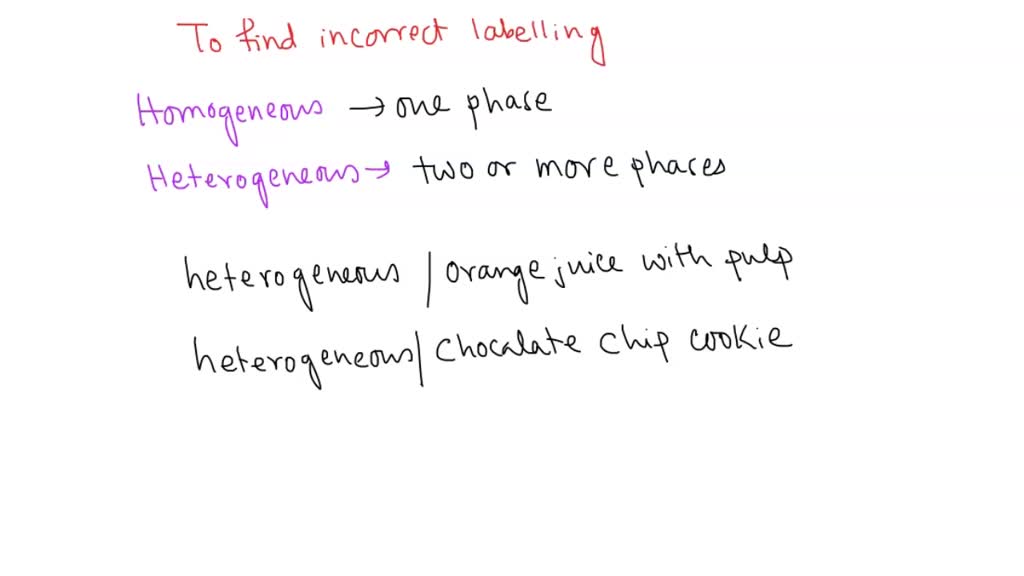 To find incorrect labelling
Homogeneous → one phase
Heterogeneous → two or more phases
heterogeneous | orange juice with pulp
heterogeneous | Chocalate chip cookie